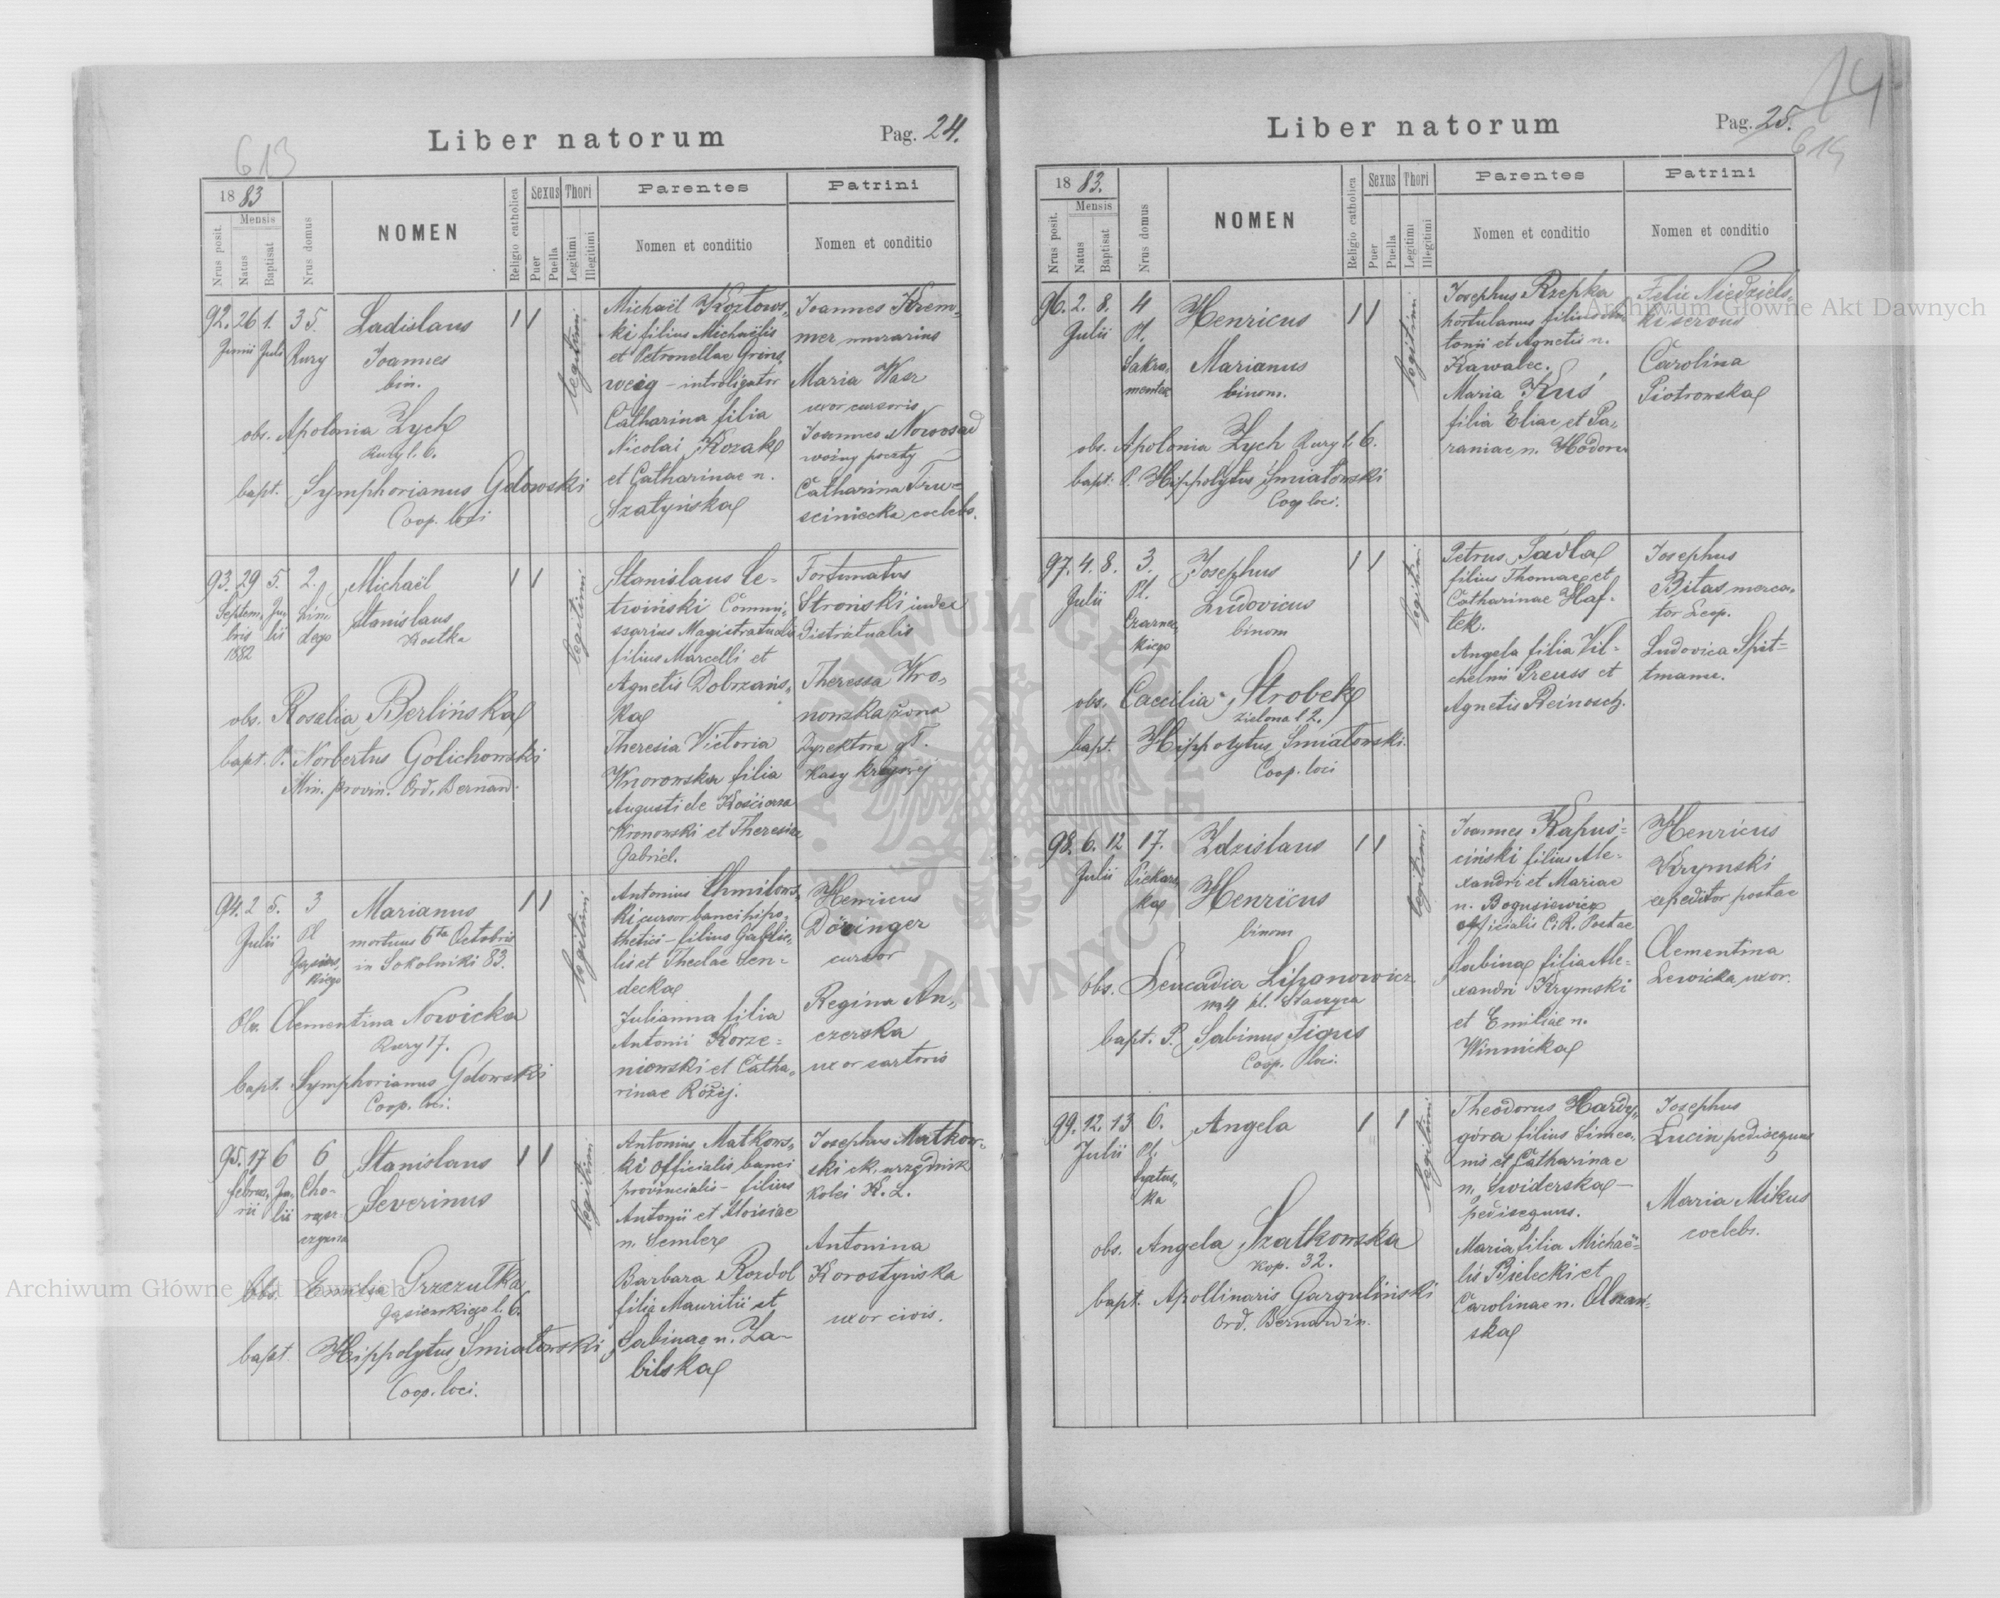 613
Liber natorum
Pag. 24.
1883
Nrus posit.
Mensis
Natus
Baptisat
Nrus domus
NOMEN
Religio catholica
Sexus
Puer
Puella
Thori
Legitimi
Illegitimi
Parentes
Nomen et conditio
Patrini
Nomen et conditio
92. 26 1. 35.
Junii Juli Rury
Ladislaus
Joannes
bin.
obs. Apolonia Zych
Rury l. 6.
bapt. Symphorianus Gdowski
Coop. loci
legitimi
Michaël Kozłows-
ki filius Michaëlis
et Petronellae Grins
weig - introligator
Catharina filia
Nicolai Kozak
et Catharinae n.
Szatyńska
Joannes Krem-
mer murarius
Maria Wasr
uxor cursoris
Joannes Nowosad
woźny poczty
Catharina Trus
sciniecka coelebs.
93. 29 5. 2.
Septem- Ju-
bris lii
1882
Michaël
Stanislaus
Kostka
obs. Rosalia Berlińska
bapt. P. Norbertus Golichowski
Min. provin. Ord. Bernard.
legitimi
Stanislaus Le-
twiński Commi-
ssarius Magistratualis
filius Marcelli et
Agnetis Dobrzańs-
ka
Theresia Victoria
Wnorowska filia
Augusti de Kościesza
Wronowski et Theresiae
Gabriel.
Fortunatus
Stroński iudex
Distriatualis
Theressa Wro-
nowska żona
Dyrektora gł.
Kasy krajowej
94. 2 5. 3
Julii Pl
Marianus
mortuus 6ta Octobris
in Sokolniki 83.
Obs. Clementina Nowicka
Rury 17.
bapt. Symphorianus Gdowski
Coop. loci.
legitimi
Antonius Chmilows-
ki cursor banci hipo-
thetici - filius
et Theclae Len-
decka
Julianna filia
Antonii Korze-
niowski et Catha-
rinae Różij.
Henricus
Döringer
cursor
Regina An-
czerska
uxor sartoris
95. 17 6 6
Februa- Ju- Cho-
rii lii
Stanislaus
Severinus
obs. Emilia Grzezutka
Jąsienskiego l. 6.
bapt. Hippolytus Śmiatowski
Coop. loci.
legitimi
Antonius Matkows-
ki officialis banci
provincialis - filius
Antonii et Aloisiae
n. Semler
Barbara Rozdol
filia Mauritii et
Sabinae n. Za-
bilska
Josephus Matkow-
ski ck. urzędnik
Kolei K. L.
Antonina
Korostyńska
uxor civis.
Liber natorum
Pag. 25.
14
614
1883.
Nrus posit.
Mensis
Natus
Baptisat
Nrus domus
NOMEN
Religio catholica
Sexus
Puer
Puella
Thori
Legitimi
Illegitimi
Parentes
Nomen et conditio
Patrini
Nomen et conditio
96. 2. 8. 4
Julii Pl.
Sakra-
mentek
Henricus
Marianus
binom.
obs. Apolonia Zych Rury l. 6.
bapt. P. Hippolytus Śmiatowski
Coop loci.
legitimi
Josephus Rzepka
hortulanus filius An-
tonii et Agnetis n.
Kawalec.
Maria Kuś
filia Eliae et Pa-
raniae n. Hodorn
Felix Niedziels-
ki servus
Carolina
Piotrowska
97. 4. 8. 3.
Julii Pl.
Czarnec-
kiego
Josephus
Ludovicus
binom
obs. Caecilia Strobek
Zielona l 2.
bapt. Hippolytus Śmiatowski.
Coop. loci
legitimi
Petrus Sadla
filius Thomae et
Catharinae Haf-
tek.
Angela filia Vil-
chelmi Preuss et
Agnetis Reinosch.
Josephus
Bilas merca-
tor Leop.
Ludovica Spit-
tmann.
98. 6. 12 17.
Julii Piekars-
ka
Zdzislaus
Henricus
binom
obs. Leucadia Lipanowicz
nr 4 pl. Staszyca
bapt. P. Sabinus Figus
Coop. loci.
legitimi
Joannes Kapuś-
ciński filius Ale-
xandri et Mariae
n. Bogusiewicz
officialis C. R. Postae
Sabina filia Ale-
xandri Krymski
et Emiliae n.
Winnicka
Henricus
Krymski
expeditor postae
Clementina
Lewicka uxor.
99. 12. 13 6.
Julii Pl.
Angela
obs. Angela Szatkowska
Kop. 32.
bapt. Apollinaris Garguliński
Ord. Bernardin.
legitimi
Theodorus Hardy-
góra filius Simeo-
nis et Catharinae
n. Swiderska -
pedisequus.
Maria filia Michaë-
lis Bielecki et
Carolinae n. Olszan-
ska
Josephus
Lucin pedisequus
Maria Mikus
coelebs.
Archiwum Główne Akt Dawnych
Archiwum Główne Akt Dawnych
ARCHIWUM GŁÓWNE AKT DAWNYCH